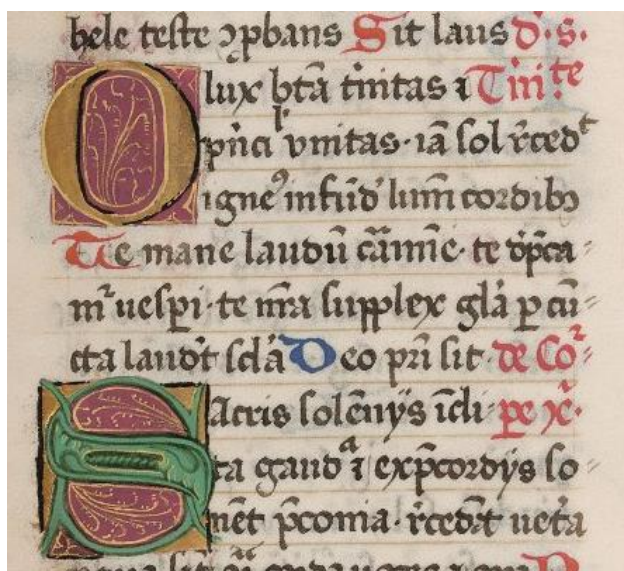 hele teste ꝯpbans Sit laus d.s.
O lux btā t'nitas ⁊ Trī.te
p'nci vnitas. iā sol r̄cedᵗ
igneꝰ infūd' lum̄ cordibꝫ
Te mane laudū cām̄īe. te dp̄ca⸗
m̄ uesp̄i. te nr̄a supplex gl'a p cū⸗
cta laud't scl'a Deo pr̄i sit. de Co⸗
Sacris solēnijs īcli pe xp̄.
ta gaudᵃ ⁊ exp̄cordijs so⸗
nēt p̄conia. r̄cedāt uet'a